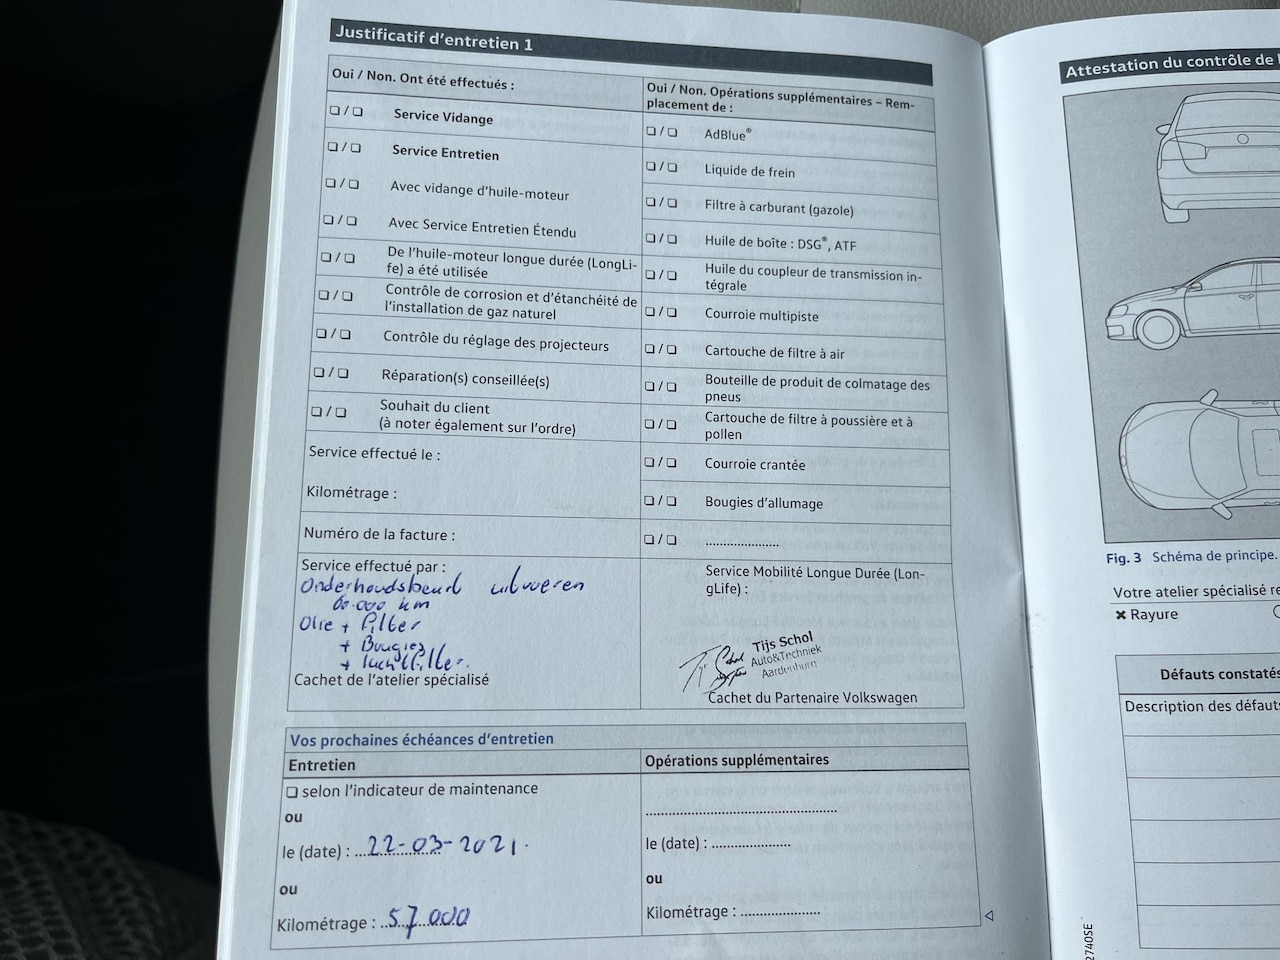 Justificatif d'entretien 1
Oui / Non. Ont été effectués :
❏ / ❏ Service Vidange
❏ / ❏ Service Entretien
❏ / ❏ Avec vidange d'huile-moteur
❏ / ❏ Avec Service Entretien Étendu
❏ / ❏ De l'huile-moteur longue durée (LongLi-
fe) a été utilisée
❏ / ❏ Contrôle de corrosion et d'étanchéité de
l'installation de gaz naturel
❏ / ❏ Contrôle du réglage des projecteurs
❏ / ❏ Réparation(s) conseillée(s)
❏ / ❏ Souhait du client
(à noter également sur l'ordre)
Service effectué le :
Kilométrage :
Numéro de la facture :
Service effectué par :
Onderhoudsbeurt uitvoeren
60.000 km
Olie + Filter
+ Bougies
+ luchtfilter.
Cachet de l'atelier spécialisé
Oui / Non. Opérations supplémentaires – Rem-
placement de :
❏ / ❏ AdBlue®
❏ / ❏ Liquide de frein
❏ / ❏ Filtre à carburant (gazole)
❏ / ❏ Huile de boîte : DSG®, ATF
❏ / ❏ Huile du coupleur de transmission in-
tégrale
❏ / ❏ Courroie multipiste
❏ / ❏ Cartouche de filtre à air
❏ / ❏ Bouteille de produit de colmatage des
pneus
❏ / ❏ Cartouche de filtre à poussière et à
pollen
❏ / ❏ Courroie crantée
❏ / ❏ Bougies d'allumage
❏ / ❏ ......................
Service Mobilité Longue Durée (Lon-
gLife) :
Tijs Schol
Auto&Techniek
Aardenburg
Cachet du Partenaire Volkswagen
Vos prochaines échéances d'entretien
Entretien
❏ selon l'indicateur de maintenance
ou
le (date) : 22-03-2021.
ou
Kilométrage : 57.000
Opérations supplémentaires
le (date) : ......................
ou
Kilométrage : ......................
Attestation du contrôle de
Fig. 3 Schéma de principe.
Votre atelier spécialisé
✖ Rayure
Défauts constatés
Description des défauts
2740SE